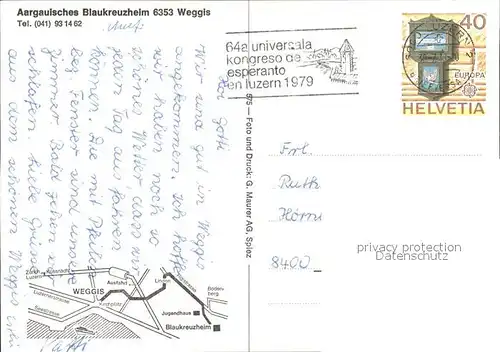 Aargauisches Blaukreuzheim 6353 Weggis
Tel. (041) 93 14 62
64a universala
kongreso de
esperanto
en luzern 1979
40
LUZERN 2
EUROPA
CEPT
HELVETIA
Gotti
Wir sind gut in Weggis
angekommen. Ich hoffe
wir haben noch so
schönes Wetter, dass wir
jeden Tag aus fahren
können. Die mit Pfeil
bez. Fenster sind unsere
Zimmer. Bald gehen wir
schlafen. Liebe Grüsse
aus dem schönen Weggis
575 – Foto und Druck: G. Maurer AG, Spiez
Frl.
Ruth
8400
property protection
Datenschutz
Zürich
Luzern
Küssnacht
Ausfahrt
Linden
Luzernerstrasse
WEGGIS
Kirchplatz
Bodenberg
Seestrasse
Jugendhaus
Blaukreuzheim